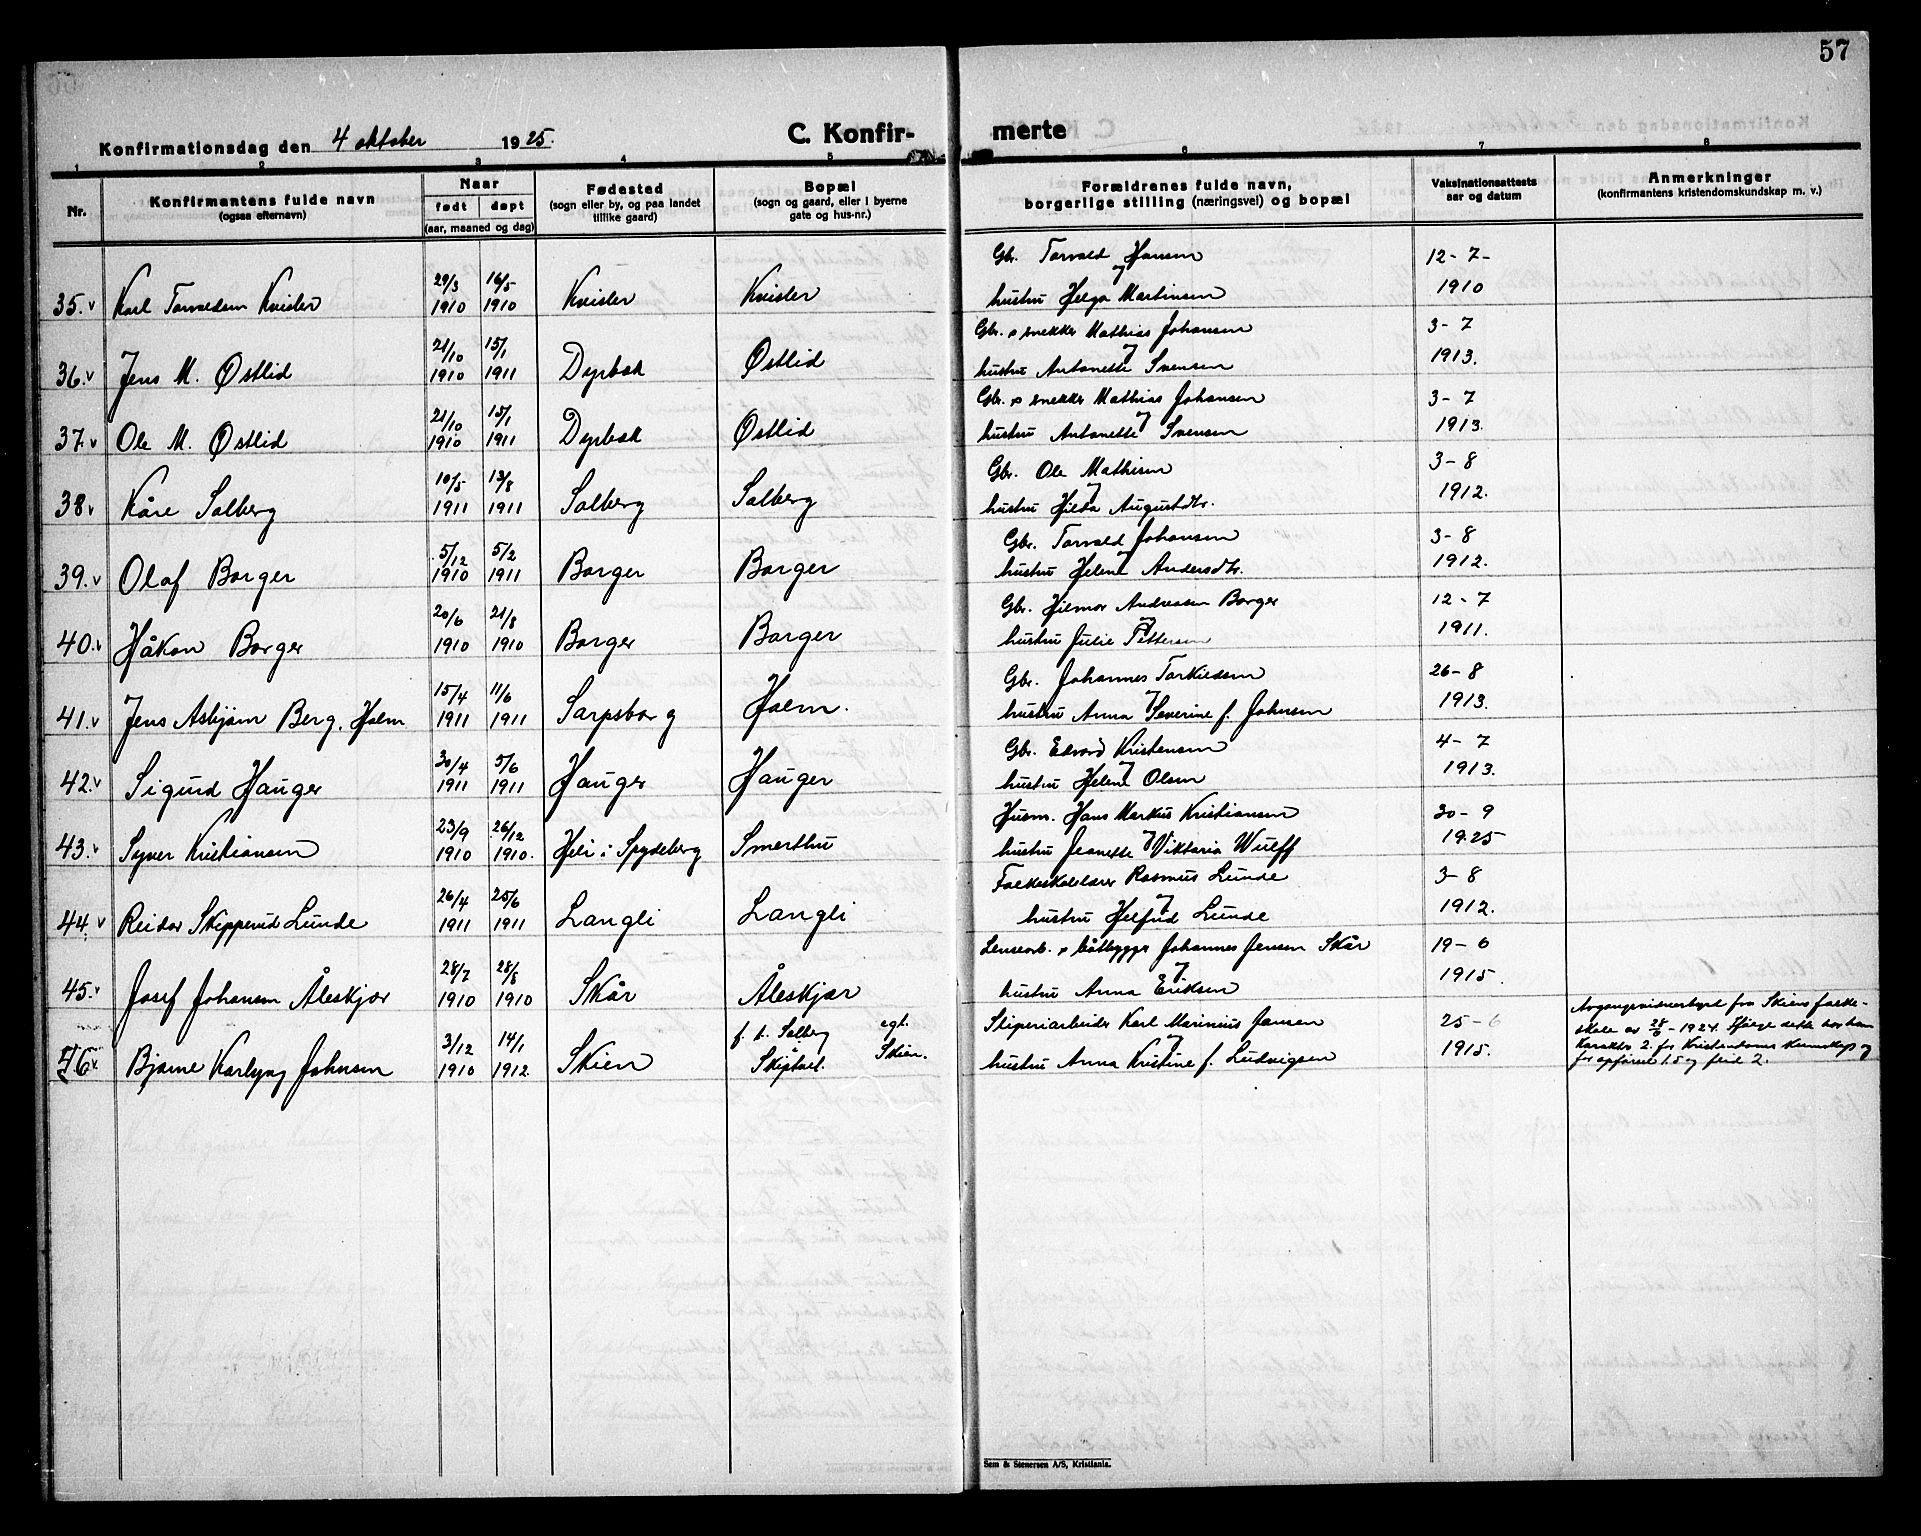 57
Konfirmationsdag den 4 oktober 1925. C. Konfir- merte
1 2 3 4 5 6 7 8
Nr. Konfirmantens fulde navn (ogsaa efternavn) Naar født døpt (aar, maaned og dag) Fødested (sogn eller by, og paa landet tillike gaard) Bopæl (sogn og gaard, eller i byerne gate og hus-nr.) Forældrenes fulde navn, borgerlige stilling (næringsvei) og bopæl Vaksinationsattests aar og datum Anmerkninger (konfirmantens kristendomskundskap m. v.)
29/3 16/5 Gbr. Torvald Hansen 12-7-
35. v Karl Torvaldsen Kvisler 1910 1910 Kvisler Kvisler hustru Helga Martinsen 1910
21/10 15/1 Gbr. & snekker Mathias Johansen 3-7
36. v Jens M. Østlid 1910 1911 Dyrbak Østlid hustru Antonette Svensen 1913.
21/10 15/1 Gbr. & snekker Mathias Johansen 3-7
37. v Ole M. Østlid 1910 1911 Dyrbak Østlid hustru Antonette Svensen 1913.
10/5 13/8 Gbr. Ole Mathisen 3-8
38 v Kåre Solberg 1911 1911 Solberg Solberg hustru Hilda Augustdtr. 1912.
5/12 5/2 Gbr. Torvald Johansen 3-8
39. v Olaf Borger 1910 1911 Borger Borger hustru Helene Andersdtr. 1912.
20/6 21/8 Gbr. Hilmar Andreasen Borger 12-7
40. v Håkon Borger 1910 1910 Borger Borger hustru Julie Pettersen 1911.
15/4 11/6 Gbr. Johannes Torkildsen 26-8
41. v Jens Asbjørn Berg, Holm 1911 1911 Sarpsborg Holm. hustru Anna Severine f. Johnsen 1913.
30/4 5/6 Gbr. Edvard Kristensen 4-7
42. v Sigurd Hauger 1911 1911 Hauger Hauger hustru Helene Olsen 1913.
23/9 26/12 Husm. Hans Markus Kristiansen 30-9
43. v Syver Kristiansen 1910 1910. Heli i Spydeberg Smerthu hustru Jeanette Viktoria Wulff 1925
26/4 25/6 Folkeskolelærer Rasmus Lunde 3-8
44. v Reidar Skipperud Lunde 1911 1911 Langli Langli hustru Helfrid Lunde 1912.
28/7 28/8 Lensearb. & båtbygger Johannes Jensen Skår 19-6
45. v Josef Johansen Åleskjær 1910 1910 Skår Åleskjær hustru Anna Eriksen 1915.
3/12 14/1 f. t. Solberg egt. Sliperiarbeider Karl Marinius Jansen 25-6
46 v Bjarne Karlyng Johnsen 1910 1912. Skien Skiptvet. Skien. hustru Anna Kristine f. Ludvigsen 1915.
Avgangsvidnesbyrd fra Skiens folke-
skole av 28/6 - 1924. Ifølge dette har han
karakter 2. for Kristendoms kunnskap og
for opførsel 1.5 og flid 2.
Sem & Stenersen A/S, Kristiania.